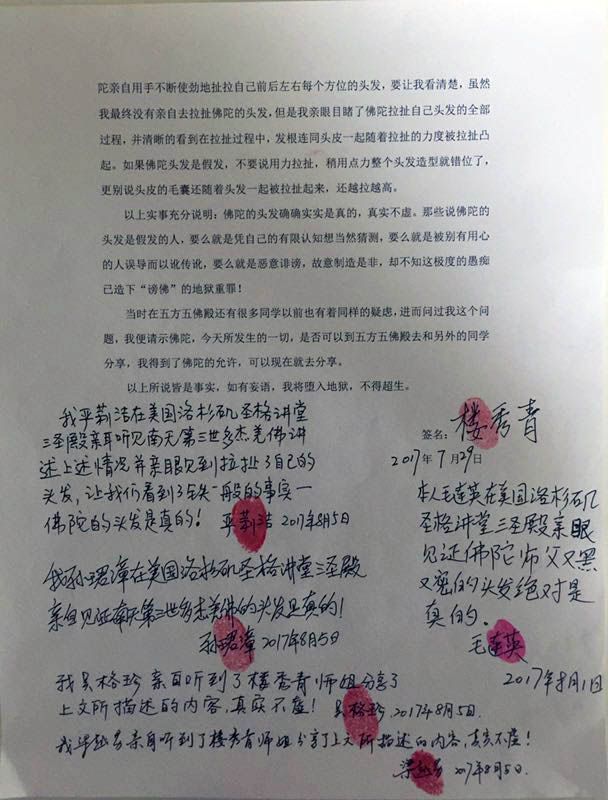 陀亲自用手不断使劲地扯拉自己前后左右每个方位的头发，要让我看清楚，虽然
我最终没有亲自去拉扯佛陀的头发，但是我亲眼目睹了佛陀拉扯自己头发的全部
过程，并清晰的看到在拉扯过程中，发根连同头皮一起随着拉扯的力度被拉扯凸
起。如果佛陀头发是假发，不要说用力拉扯，稍用点力整个头发造型就错位了，
更别说头皮的毛囊还随着头发一起被拉扯起来，还越拉越高。
以上实事充分说明：佛陀的头发确确实实是真的，真实不虚。那些说佛陀的
头发是假发的人，要么就是凭自己的有限认知想当然猜测，要么就是被别有用心
的人误导而以讹传讹，要么就是恶意诽谤，故意制造是非，却不知这极度的愚痴
已造下“谤佛”的地狱重罪！
当时在五方五佛殿还有很多同学以前也有着同样的疑虑，进而问过我这个问
题，我便请示佛陀，今天所发生的一切，是否可以到五方五佛殿去和另外的同学
分享，我得到了佛陀的允许，可以现在就去分享。
以上所说皆是事实，如有妄语，我将堕入地狱，不得超生。
签名：楼秀青
2017年7月29日
我平莉洁在美国洛杉矶圣格讲堂
三圣殿亲耳听见南无第三世多杰羌佛讲
述上述情况并亲眼见到拉扯了自己的
头发，让我们看到了铁一般的事实—
佛陀的头发是真的！ 平莉洁 2017年8月5日
本人毛莲英在美国洛杉矶
圣格讲堂三圣殿亲眼
见证佛陀师父又黑
又宽的头发绝对是
真的。
毛莲英
2017年8月1日
我孙珺漳在美国洛杉矶圣格讲堂三圣殿
亲自见证南无第三世多杰羌佛的头发是真的！
孙珺漳 2017年8月5日
我吴格珍亲自听到了楼秀青师姐分享了
上文所描述的内容，真实不虚！ 吴格珍 2017年8月5日.
我 亲自听到了楼秀青师姐分享了上文所描述的内容，真实不虚！
2017年8月5日.